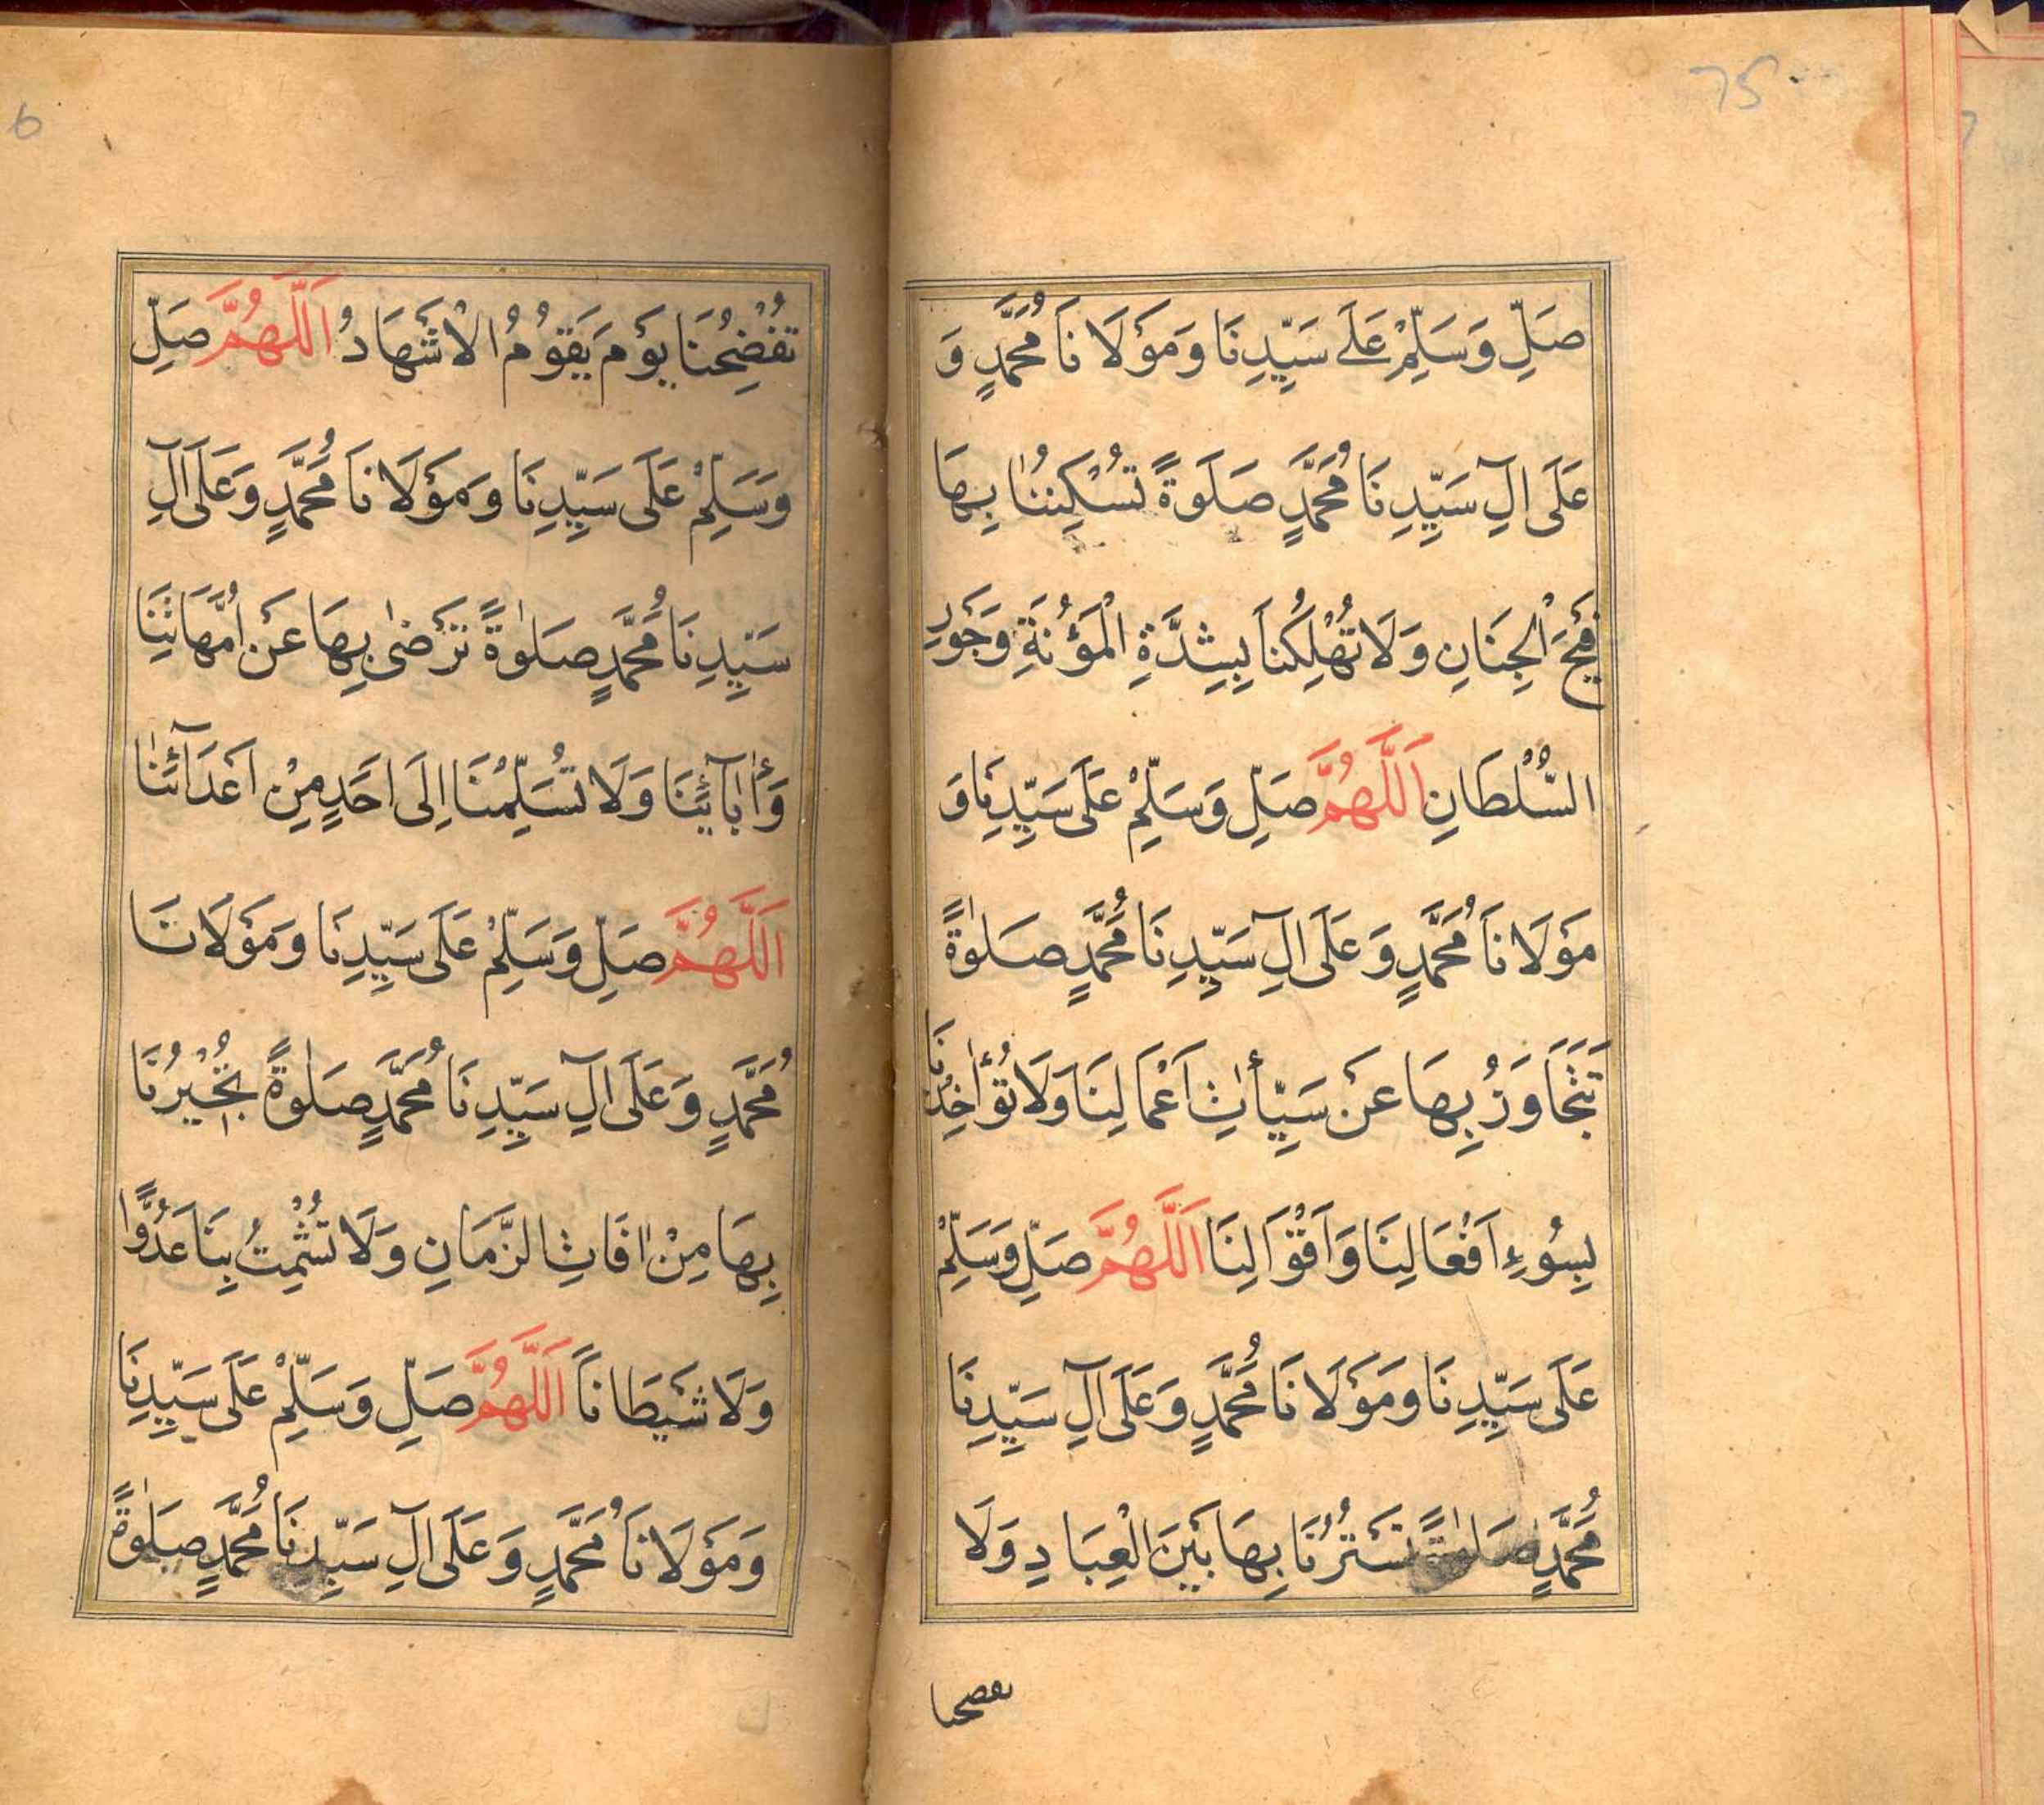 صَلِّ وَسَلِّمْ عَلَے سَيِّدِنَا وَمَوْلَا نَا مُحَمَّدٍ وَ
عَلَى اٰلِ سَيِّدِ نَا مُحَمَّدٍ صَلَوةً تُسْكِنُنَا بِهَا
الْجِنَانِ وَلَا تُهْلِكُنَا بِشِدَّةِ الْمَؤُنَةِ وَجَوْرِ
السُّلْطَانِ اَللّٰهُمَّ صَلِّ وَسَلِّمْ عَلَى سَيِّدِنَا وَ
مَوْلَا نَا مُحَمَّدٍ وَ عَلَى اٰلِ سَيِّدِ نَا مُحَمَّدٍ صَلٰوةً
تَتَجَاوَزُ بِهَا عَنْ سَيِّأٰتِ اَعْمَالِنَا وَلَا تُؤٰاخِذُنَا
بِسُوْءِ اَفْعَالِنَا وَاَقْوَالِنَا اَللّٰهُمَّ صَلِّ وَسَلِّمْ
عَلَى سَيِّدِ نَا وَمَوْلَا نَا مُحَمَّدٍ وَعَلَى اٰلِ سَيِّدِنَا
مُحَمَّدٍ صَلٰوةً تَسْتُرُنَا بِهَا بَيْنَ الْعِبَادِ وَلَا
تَفْضِحُنَا يَوْمَ يَقُوْمُ الْاَشْهَادُ اَللّٰهُمَّ صَلِّ
وَسَلِّمْ عَلَى سَيِّدِنَا وَمَوْلَا نَا مُحَمَّدٍ وَعَلَى اٰلِ
سَيِّدِ نَا مُحَمَّدٍ صَلٰوةً تَرْضٰى بِهَا عَنْ اُمَّهَاتِنَا
وَأٰبَآئِنَا وَلَا تُسَلِّمُنَا اِلَى اَحَدٍ مِنْ اَعْدَآئِنَا
اَللّٰهُمَّ صَلِّ وَسَلِّمْ عَلَى سَيِّدِنَا وَمَوْلَانَا
مُحَمَّدٍ وَعَلَى اٰلِ سَيِّدِ نَا مُحَمَّدٍ صَلٰوةً تُجِيْرُنَا
بِهَا مِنْ اٰفَاتِ الزَّمَانِ وَلَا تُشْمِتُ بِنَا عَدُوًّا
وَلَا شَيْطَانًا اَللّٰهُمَّ صَلِّ وَسَلِّمْ عَلَى سَيِّدِنَا
وَمَوْلَا نَا مُحَمَّدٍ وَعَلَى اٰلِ سَيِّدِنَا مُحَمَّدٍ صَلٰوةً
75
6